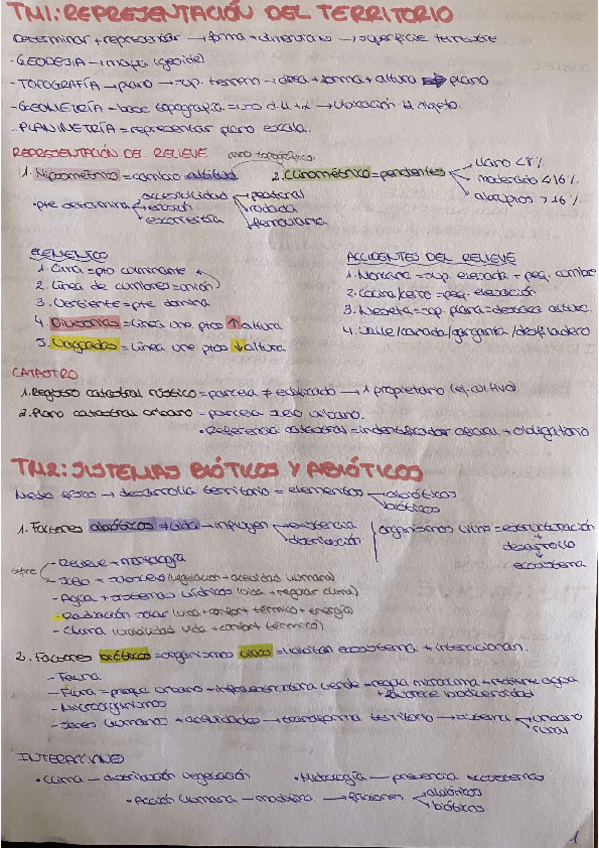 TM1: REPRESENTACIÓN DEL TERRITORIO
Determinar + representar → forma + dimensiones → superficie terrestre
·GEODESIA → mapa (geoide)
·TOPOGRAFÍA → plano → sup. terreno → área + forma + altura ⇒ plano
-GEOMETRÍA - base topografía = uso d. H + α → ubicación
·PLANIMETRÍA = representar plano escala.
REPRESENTACIÓN DEL RELIEVE
plano topográfico
1. Hipsométrico = cambio altitud
2. Clinométrico = pendientes
llano <8%
moderado <16%
abruptos >16%
·pte determina
accesibilidad
erosión
escorrentía
peatonal
rodada
ferroviaria
ELEMENTOS
1. Cima = pto culminante
2. Línea de cumbres = unión
3. Vertiente = pte domina
4. Divisorias = línea une ptos ↑ altura
5. Vaguadas = línea une ptos ↓ altura
ACCIDENTES DEL RELIEVE
1. Montaña = sup. elevada + peq. cumbre
2. Colina/cerro = peq. elevación
3. Meseta = sup. plana = destaca altura.
4. Valle/cañada/garganta/desfiladero
CATASTRO
1. Registro catastral rústico = parcela ≠ edificado → 1 propietario (ej. cultivo)
2. Plano catastral urbano - parcela suelo urbano.
• Referencia catastral = identificador oficial + obligatorio
TM2: SISTEMAS BIÓTICOS Y ABIÓTICOS
Medio físico → desarrolla territorio = elementos
abióticos
bióticos
1. Factores abióticos ≠ vida → influyen
existencia
distribución
organismos vivos = estructuración
↓
desarrollo
↓
ecosistema
- Relieve + morfología
- Suelo + (vegetación + actividad humana)
- Agua + sistemas hídricos (vida + regular clima)
- Radiación solar (vida + confort térmico + energía)
- Clima (viabilidad vida + confort térmico)
2. Factores bióticos = organismos vivos = habitan ecosistema + interaccionan.
- Fauna
- Flora = parque urbano + infraestructura verde = regula microclima + retiene agua
+ favorece biodiversidad
- Microorganismos
- Seres humanos + actividades → transforma territorio → sistema
urbano
rural
INTERACCIONES
• Clima — distribución vegetación
• Hidrología — presencia ecosistemas
• Acción humana — modifica → factores
abióticos
bióticos
1